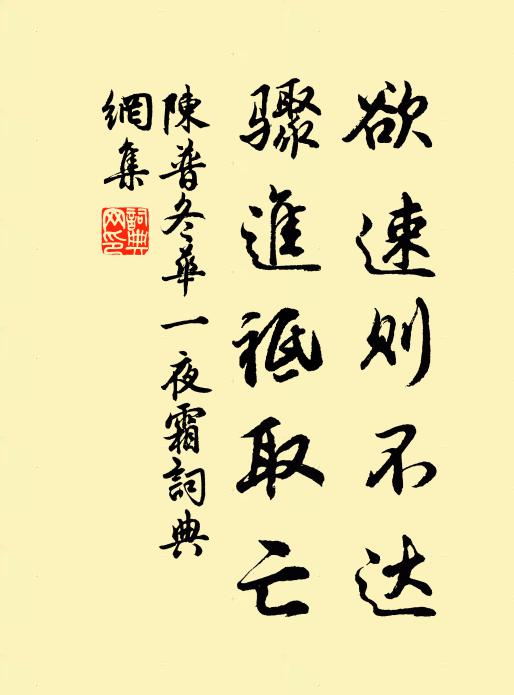 欲速则不达
骤進祗取亡
陳普冬華一夜霜詞典
網集
詞典網印